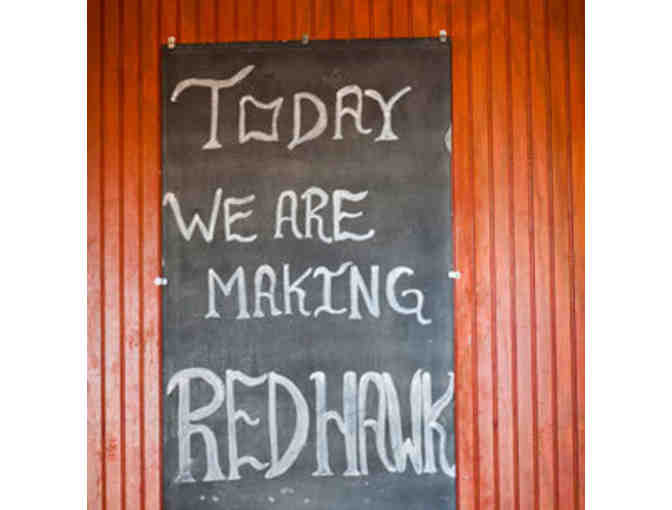 TODAY
WE ARE
MAKING
REDHAWK